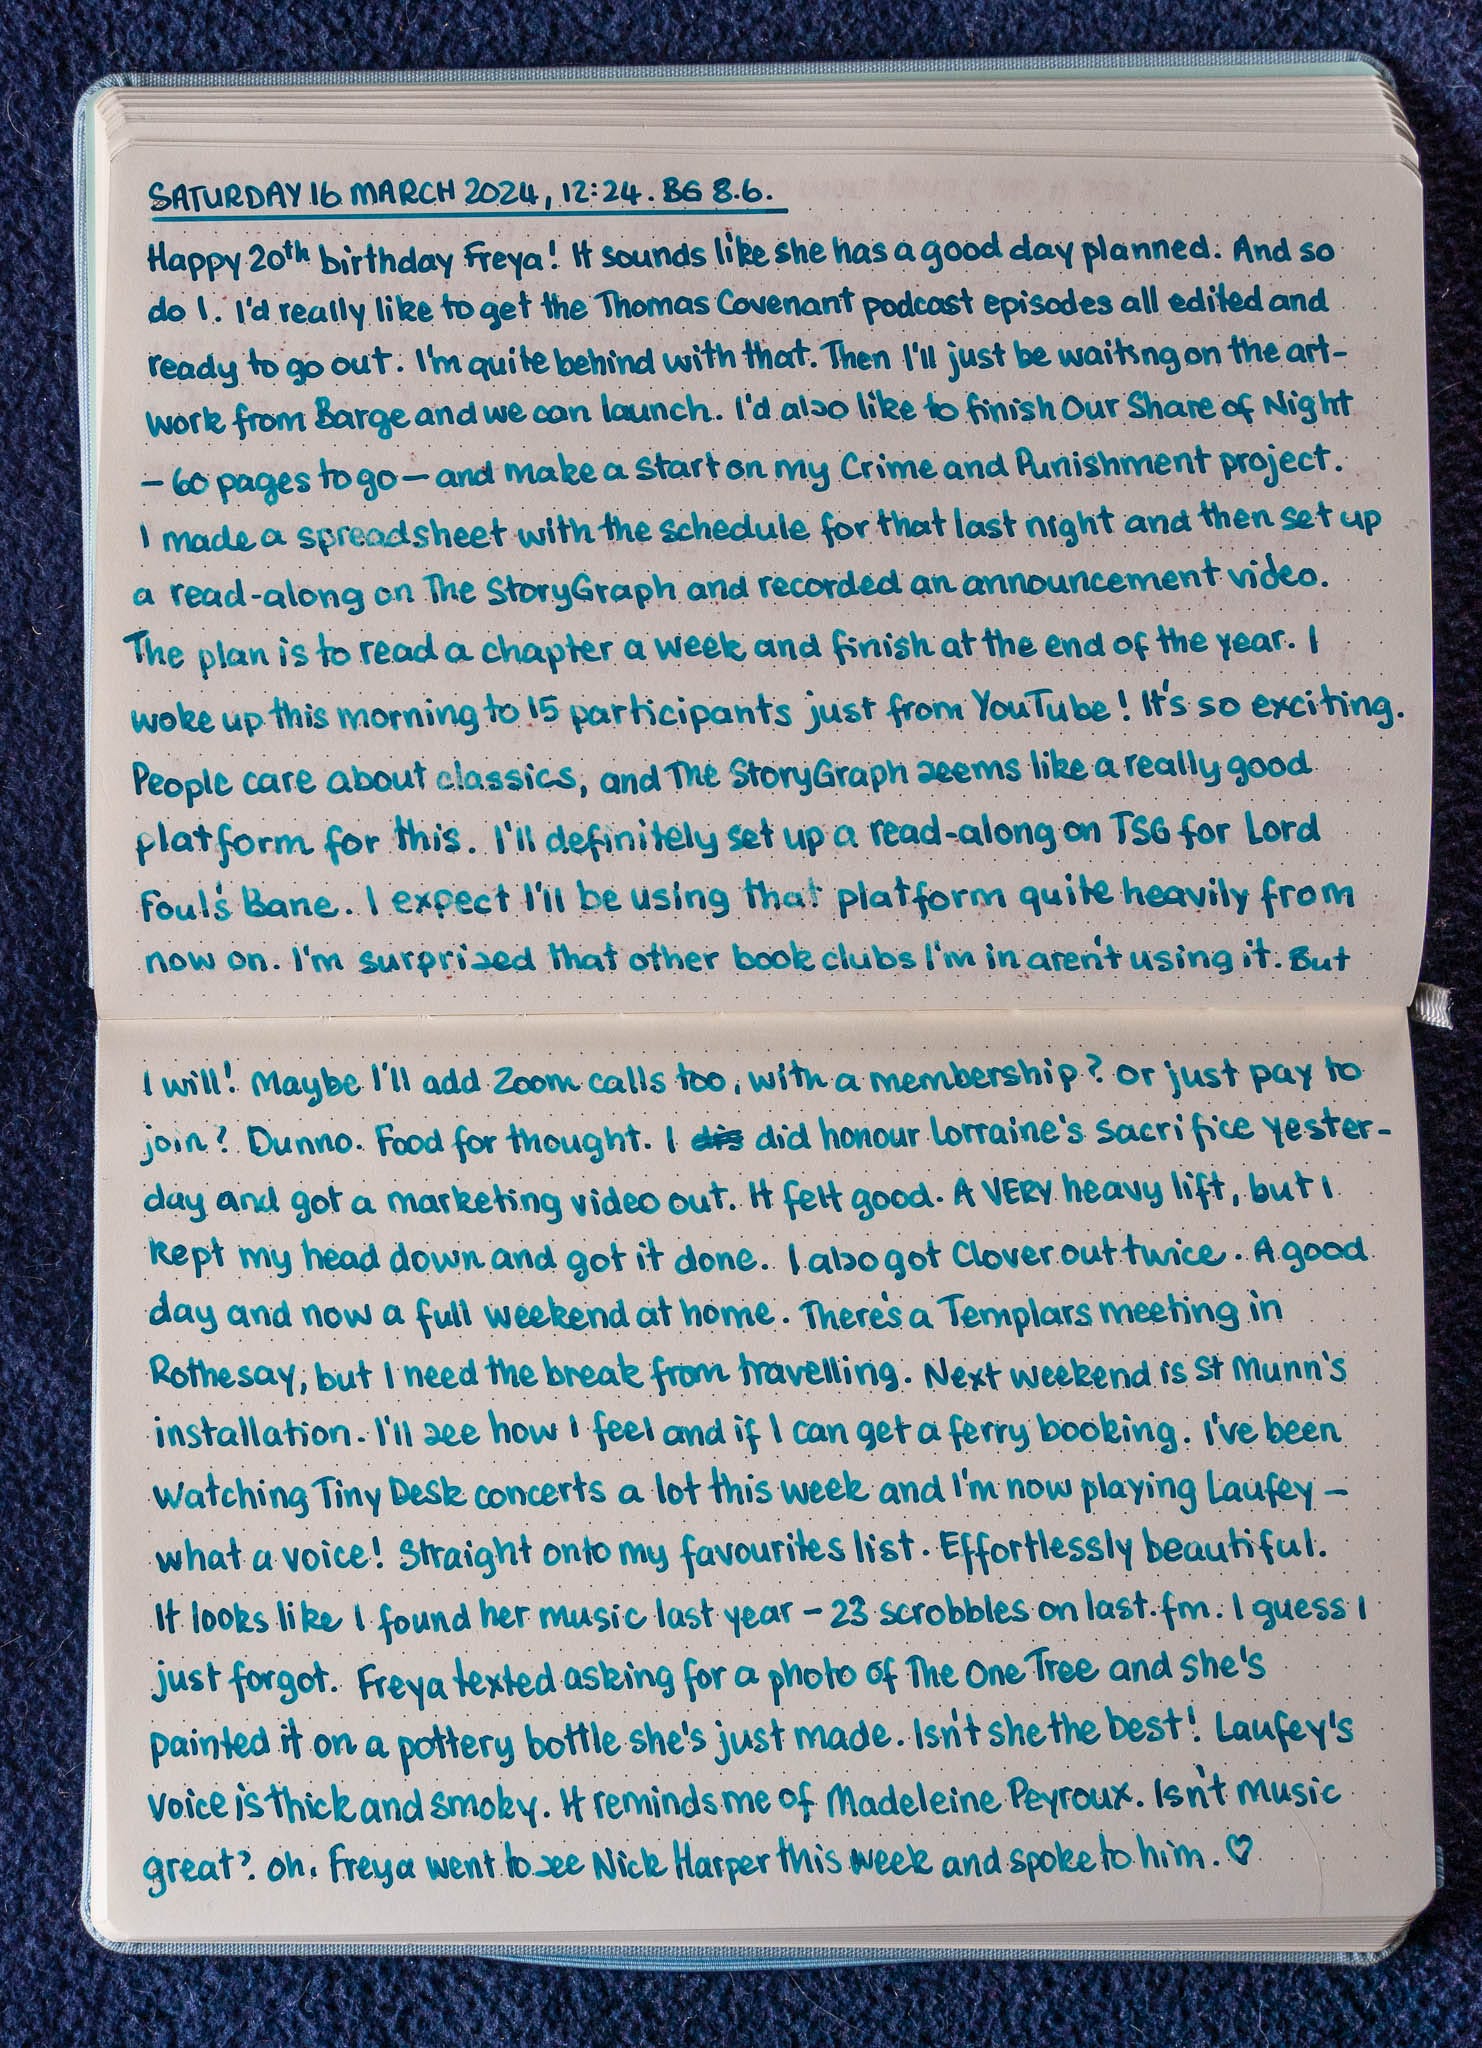 SATURDAY 16 MARCH 2024, 12:24. BG 8.6.
Happy 20th birthday Freya! It sounds like she has a good day planned. And so
do I. I'd really like to get the Thomas Covenant podcast episodes all edited and
ready to go out. I'm quite behind with that. Then I'll just be waiting on the art-
work from Barge and we can launch. I'd also like to finish Our Share of Night
– 60 pages to go – and make a start on my Crime and Punishment project.
I made a spreadsheet with the schedule for that last night and then set up
a read-along on The StoryGraph and recorded an announcement video.
The plan is to read a chapter a week and finish at the end of the year. I
woke up this morning to 15 participants just from YouTube! It's so exciting.
People care about classics, and The StoryGraph seems like a really good
platform for this. I'll definitely set up a read-along on TSG for Lord
Foul's Bane. I expect I'll be using that platform quite heavily from
now on. I'm surprised that other book clubs I'm in aren't using it. But
I will! Maybe I'll add Zoom calls too, with a membership? Or just pay to
join? Dunno. Food for thought. I dis did honour Lorraine's sacrifice yester-
day and got a marketing video out. It felt good. A VERY heavy lift, but I
kept my head down and got it done. I also got Clover out twice. A good
day and now a full weekend at home. There's a Templars meeting in
Rothesay, but I need the break from travelling. Next weekend is St Munn's
installation. I'll see how I feel and if I can get a ferry booking. I've been
watching Tiny Desk concerts a lot this week and I'm now playing Laufey –
what a voice! Straight onto my favourites list. Effortlessly beautiful.
It looks like I found her music last year – 23 scrobbles on last.fm. I guess I
just forgot. Freya texted asking for a photo of The One Tree and she's
painted it on a pottery bottle she's just made. Isn't she the best! Laufey's
voice is thick and smoky. It reminds me of Madeleine Peyroux. Isn't music
great? Oh, Freya went to see Nick Harper this week and spoke to him. ♡